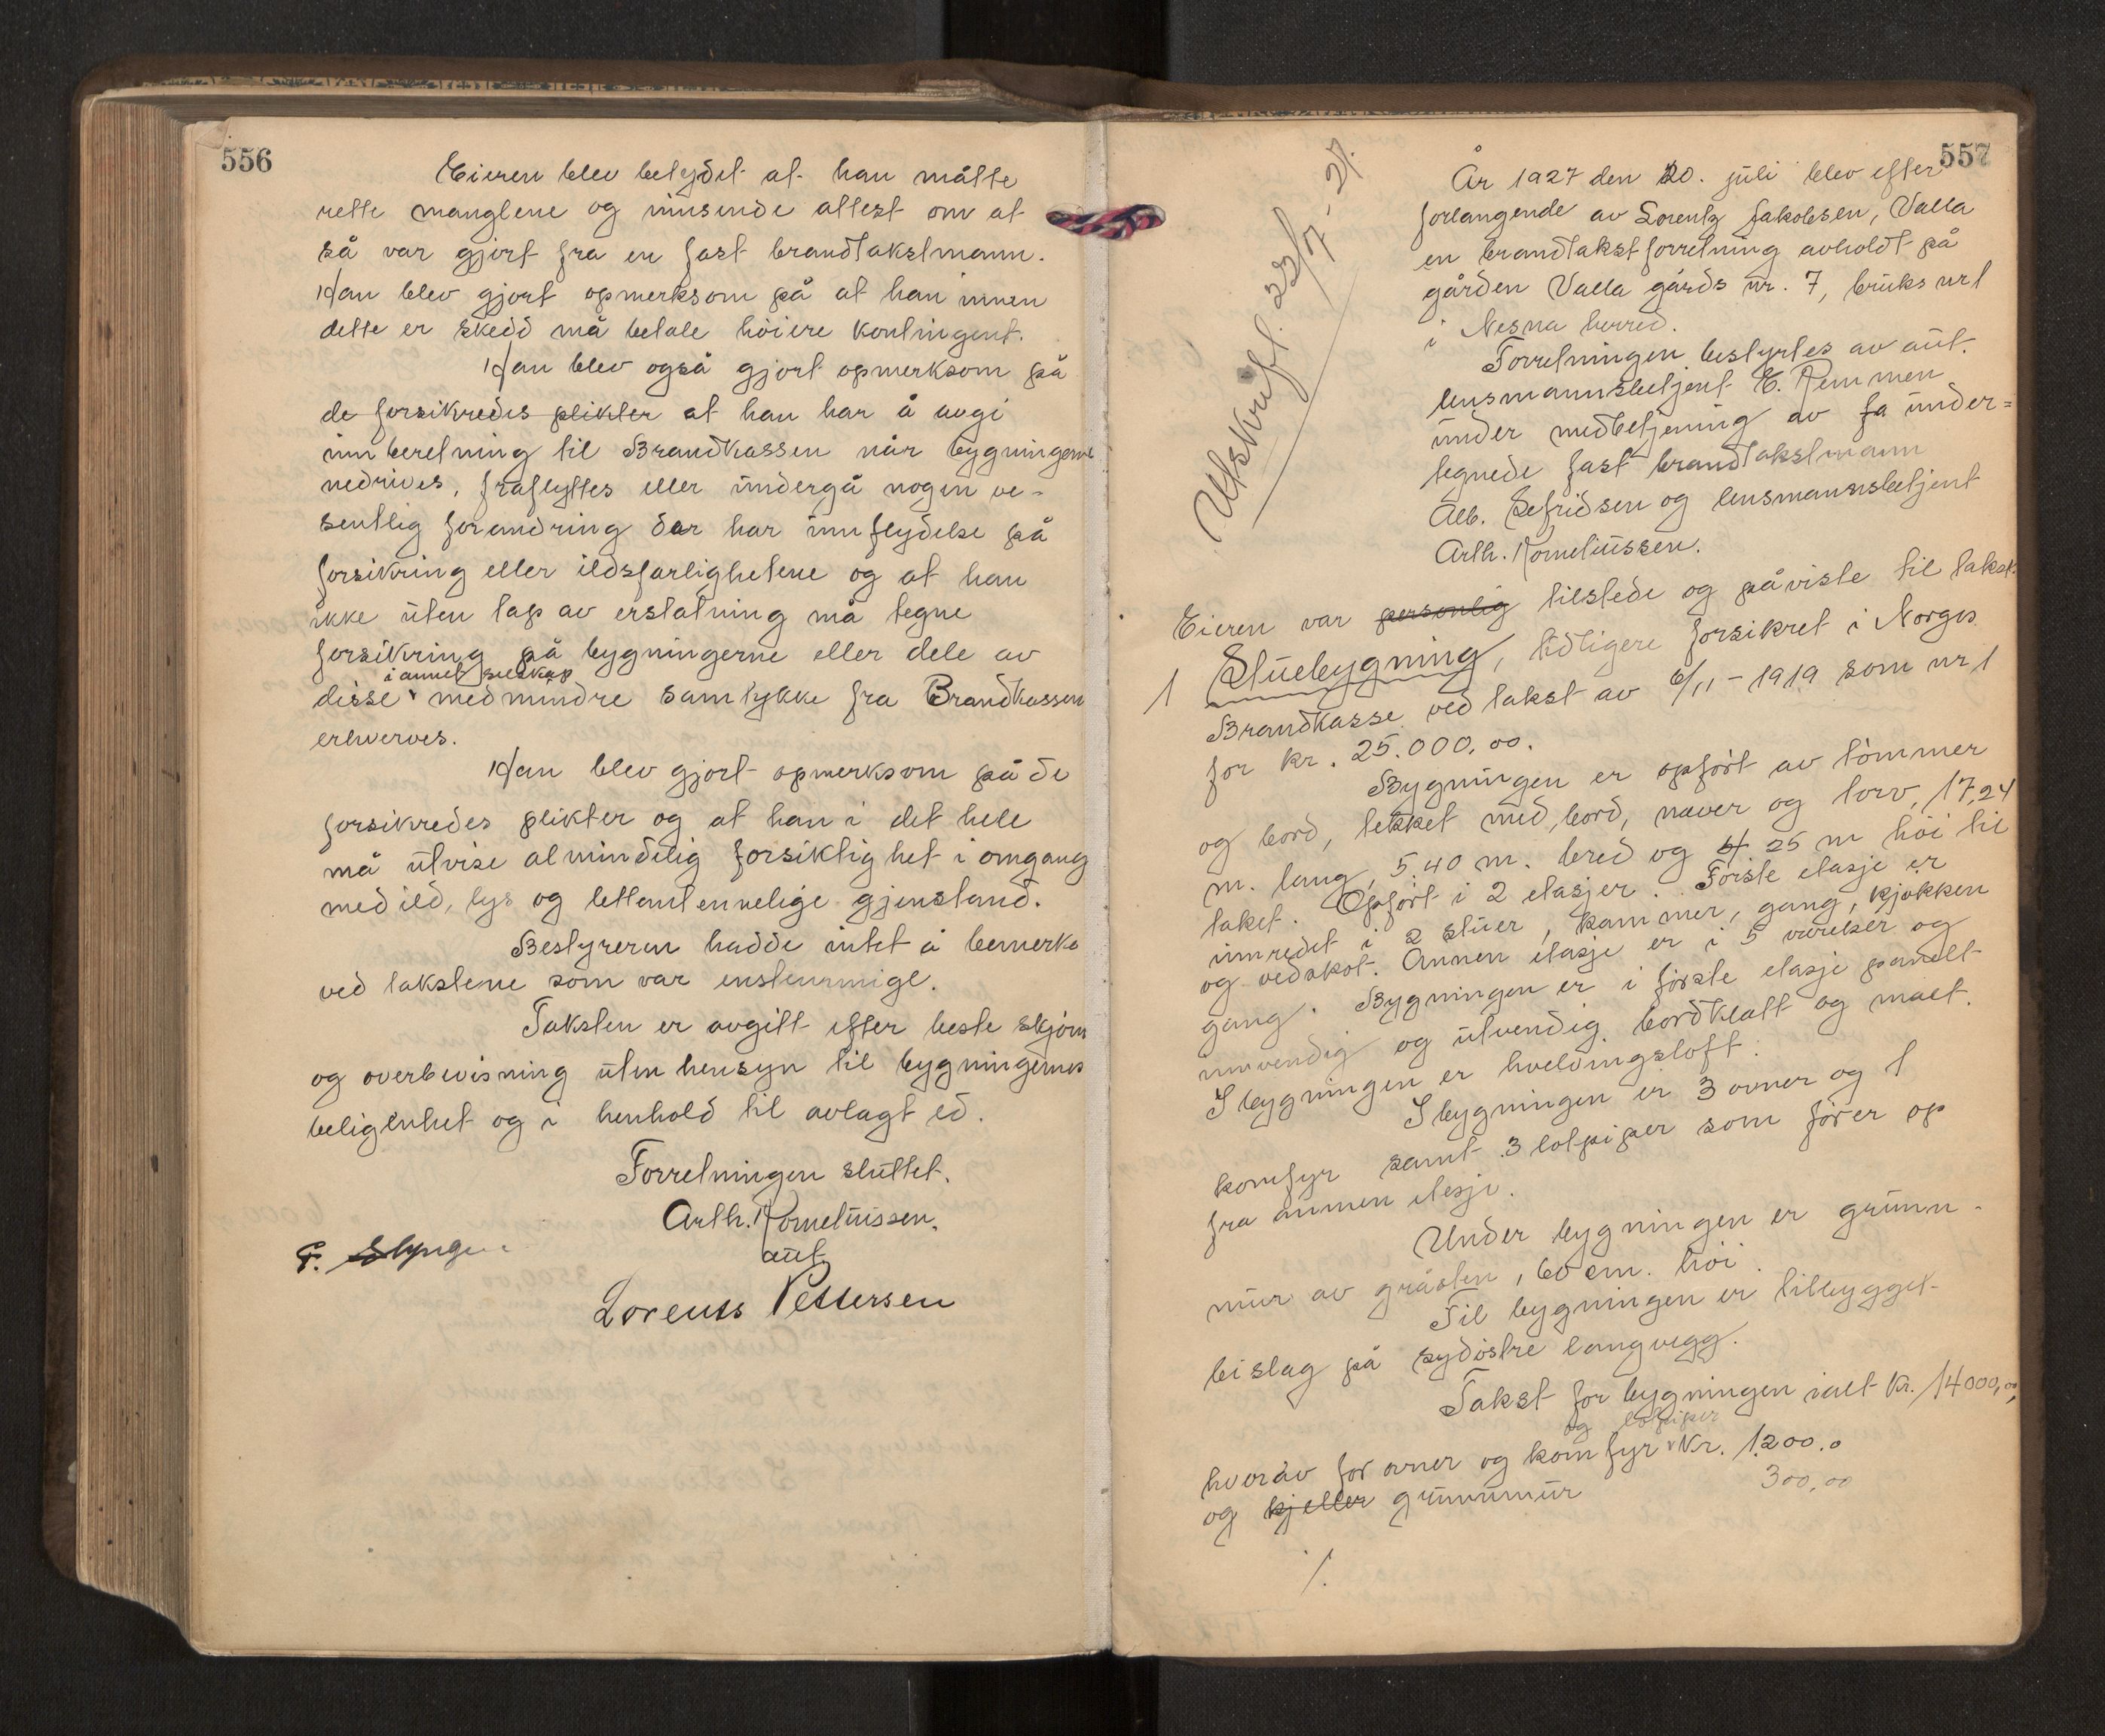 556
Eieren blev betydet at han måtte
rette manglene og innsende attest om at
så var gjort fra en fast brandtakstmann.
Han blev gjort opmerksom på at han innen
dette er skedd må betale höiere kontingent.
Han blev også gjort opmerksom på
de forsikredes plikter at han har å avgi
innberetning til Brandkassen når bygningerne
nedrives, fraflyttes eller undergå nogen ve-
sentlig forandring der har innflydelse på
forsikring eller ildsfarlighetene og at han
ikke uten tap av erstatning må tegne
forsikring på bygningerne eller dele av
i annet selskap
disse medmindre samtykke fra Brandkassen
erhverves.
Han blev gjort opmerksom på de
forsikredes plikter og at han i det hele
må utvise almindelig forsiktighet i omgang
med ild, lys og lettantennelige gjenstand.
Bestyreren hadde intet å bemerke
ved takstene som var enstemmige.
Taksten er avgitt efter beste skjönn
og overbevisning uten hensyn til bygningernes
beligenhet og i henhold til avlagt ed.
Forretningen sluttet.
Arth. Korneliussen.
aut
Lorents Pettersen
557
Utskrift 23/7-27.
År 1927 den 20. juli blev efter
forlangende av Lorentz Jakobsen, Valla
en brandtakstforretning avholdt på
gården Valla gårds nr. 7, bruks nr 1
i Nesna herred.
Forretningen bestyrtes av aut.
lensmannsbetjent E. Remmen
under medbetjening av fa under=
tegnede fast brandtakstmann
Alb. Sefridsen og lensmannsbetjent
Arth. Korneliussen.
Eieren var personlig tilstede og påviste til takst:
1 Stuebygning, tidligere forsikret i Norges
Brandkasse ved takst av 6/11-1919 som nr 1
for kr. 25.000,00.
Bygningen er opfört av tömmer
og bord, tekket med bord, næver og torv, 17,24
m. lang, 5.40 m. bred og 25 m höi til
taket. Opfört i 2 etasjer. Förste etasje er
innredet i 2 stuer, kammer, gang, kjökken
og vedskot. Annen etasje er i 5 værelser og
gang. Bygningen er i förste etasje panelt
innvendig og utvendig bordklatt og malt.
I bygningen er hvelvingsloft.
I bygningen er 3 ovner og 1
komfyr samt 3 lötpiper som förer op
fra annen etasje.
Under bygningen er grunn-
mur av gråsten, 60 cm. höi.
Til bygningen er tilbygget
bislag på sydöstre langvegg.
Takst for bygningen ialt kr. 14000,00,
og lötpiper
hverav for ovner og komfyr Kr. 1200.0
og kjeller grunnmur 300,00
/.